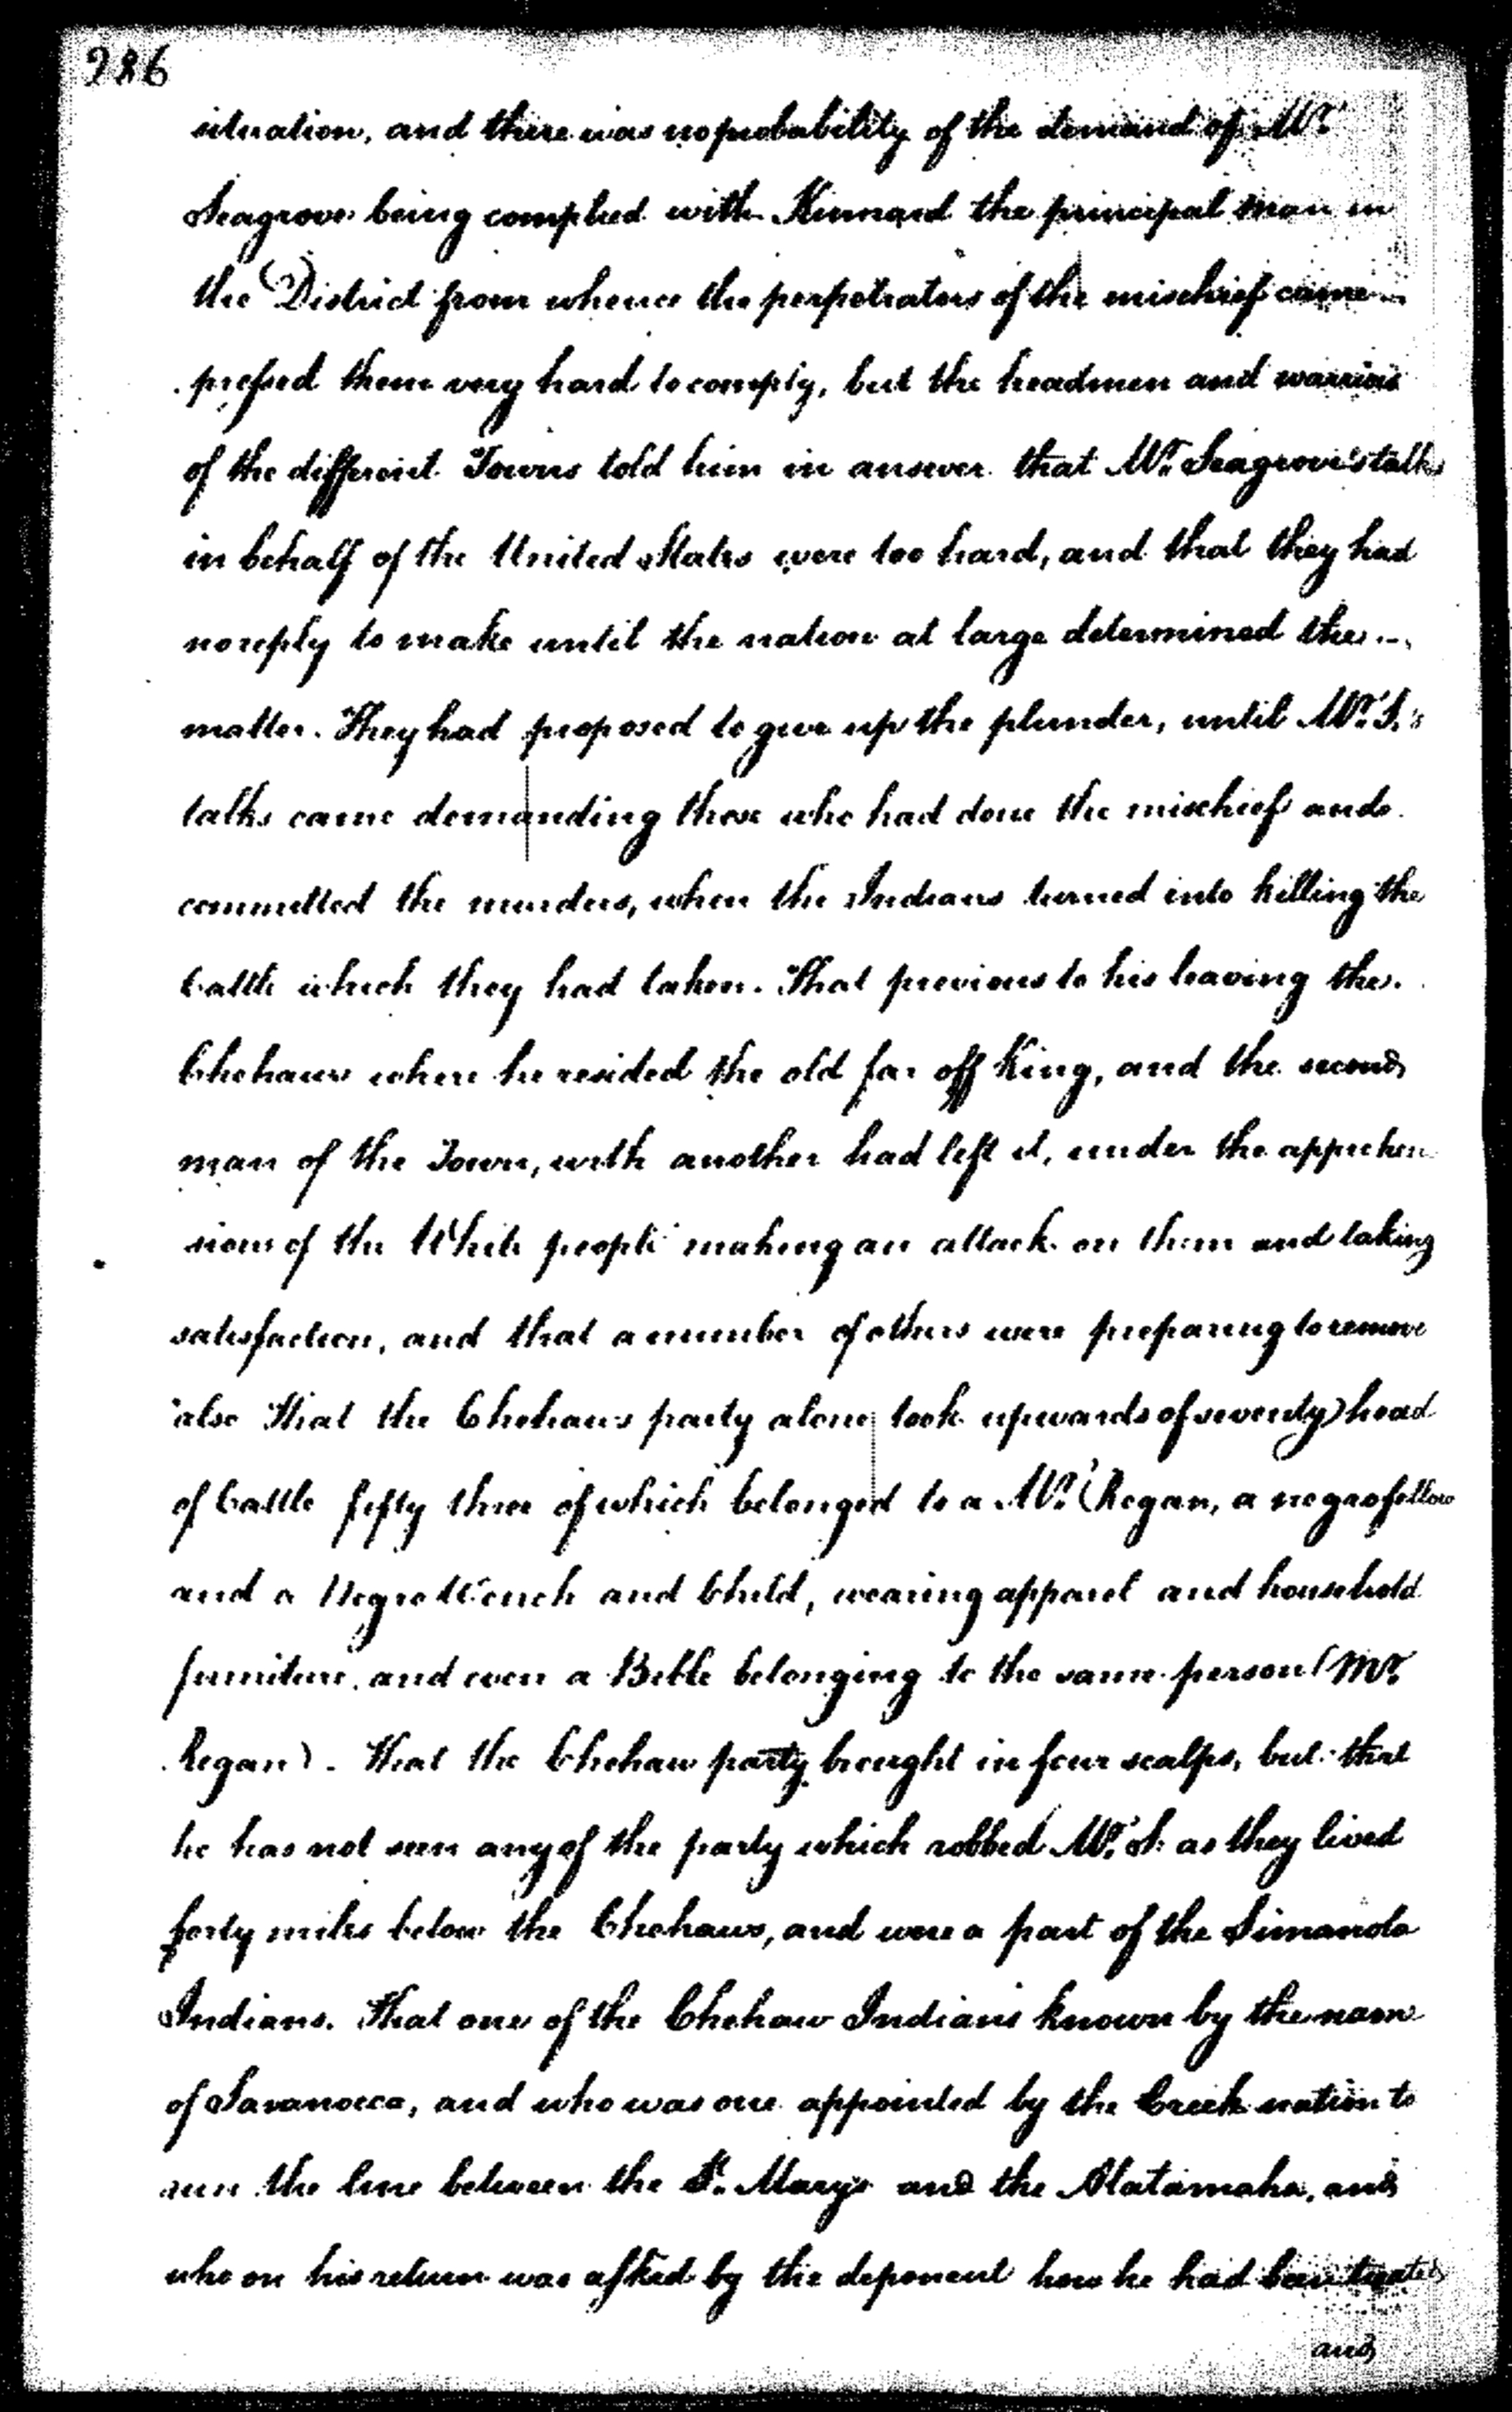 286
situation, and there was no probability of the demand of Mr.
Seagrove being complied with Kinnard the principal man in
the District from whence the perpetrators of the mischief came
pressed them very hard to comply, but the headmen and warriors
of the different Towns told him in answer that Mr. Seagrove's talks
in behalf of the United States were too hard, and that they had
no reply to make until the nation at large determined the
matter. They had proposed to give up the plunder, until Mr. S.'s
talks came demanding those who had done the mischief and
committed the murders, when the Indians turned into killing the
Cattle which they had taken. That previous to his leaving the
Chehaws where he resided the old far off King, and the second
man of the Town, with another had left it, under the apprehen
sions of the White people making an attack on them and taking
satisfaction, and that a number of others were preparing to remove
also That the Chehaws party alone took upwards of seventy head
of Cattle fifty three of which belonged to a Mr. Regan, a negro fellow
and a Negro Wench and Child, wearing apparel and household
furniture, and even a Bible belonging to the same person (Mr.
Regan). That the Chehaw party brought in four scalps, but that
he has not seen any of the party which robbed Mr. S. as they lived
forty miles below the Chehaws, and were a part of the Simanola
Indians. That one of the Chehaw Indians known by the name
of Savanocca, and who was one appointed by the Creek nation to
run the line between the St. Mary's and the Alatamaha, and
who on his return was asked by the deponent how he had been treated
and